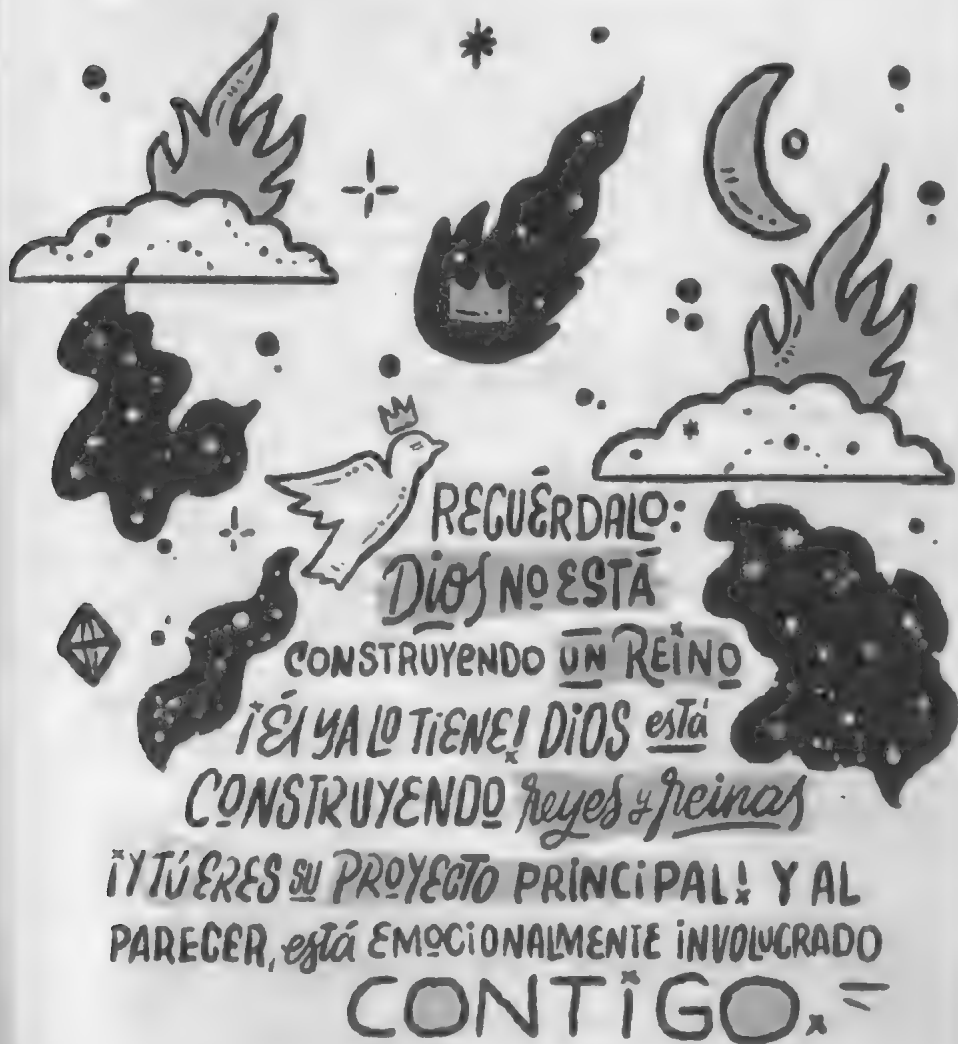 RECUÉRDALO:
Dios NO ESTÁ
CONSTRUYENDO UN REINO
¡ÉL YA LO TIENE! DIOS está
CONSTRUYENDO reyes y reinas
¡Y TÚ ERES SU PROYECTO PRINCIPAL! Y AL
PARECER, está EMOCIONALMENTE INVOLUCRADO
CONTIGO.